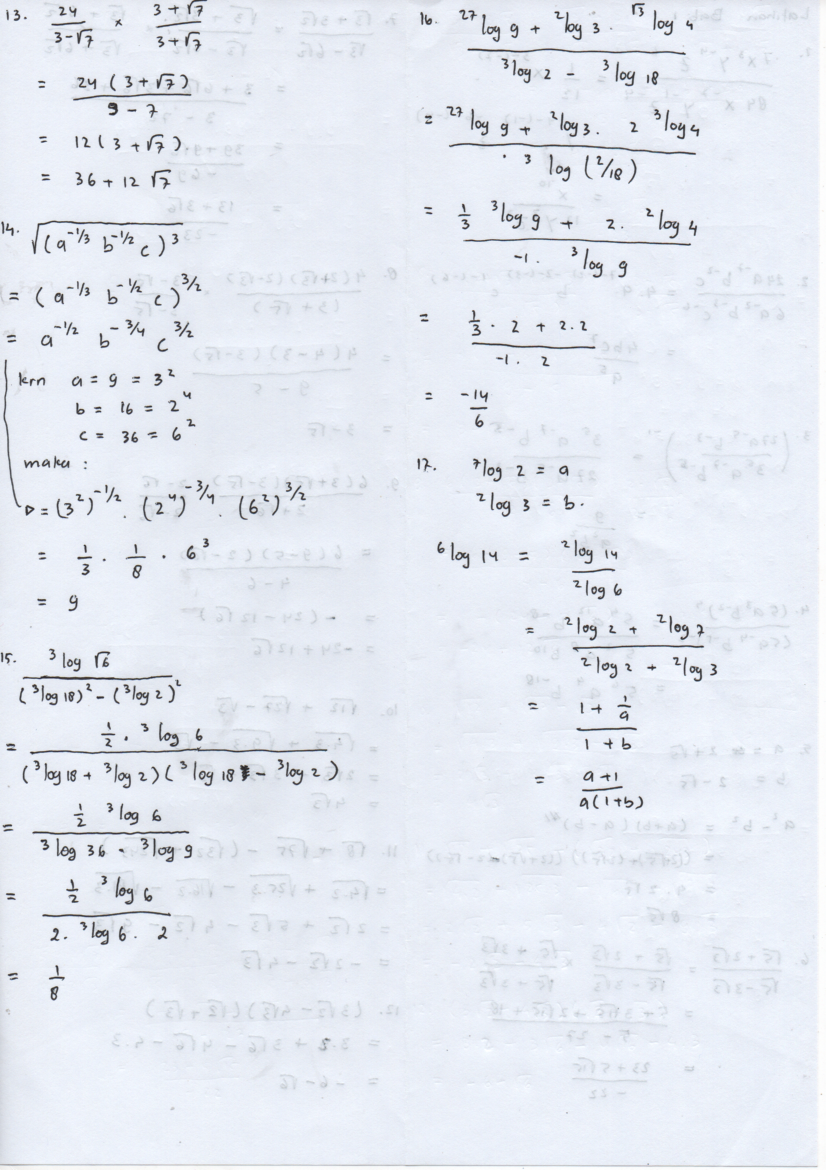 13. 24/(3-√7) × (3+√7)/(3+√7)
= 24(3+√7)/(9-7)
= 12(3+√7)
= 36+12√7
14. √((a^-1/3 b^-1/2 c)^3)
= (a^-1/3 b^-1/2 c)^3/2
= a^-1/2 b^-3/4 c^3/2
krn a = 9 = 3²
b = 16 = 2⁴
c = 36 = 6²
maka :
▷ = (3²)^-1/2 . (2⁴)^-3/4 . (6²)^3/2
= 1/3 . 1/8 . 6³
= 9
15. ³log √6 / ((³log 18)² - (³log 2)²)
= 1/2 . ³log 6 / ((³log 18 + ³log 2)(³log 18 - ³log 2))
= 1/2 ³log 6 / (³log 36 - ³log 9)
= 1/2 ³log 6 / (2. ³log 6. 2)
= 1/8
16. (²⁷log 9 + ²log 3 . ^√3 log 4) / (³log 2 - ³log 18)
= (²⁷log 9 + ²log 3. 2 ³log 4) / (³log (2/18))
= (1/3 ³log 9 + 2. ²log 4) / (-1. ³log 9)
= (1/3 . 2 + 2.2) / (-1. 2)
= -14/6
17. ⁷log 2 = a
²log 3 = b.
⁶log 14 = ²log 14 / ²log 6
= (²log 2 + ²log 7) / (²log 2 + ²log 3)
= (1 + 1/a) / (1 + b)
= (a+1) / (a(1+b))